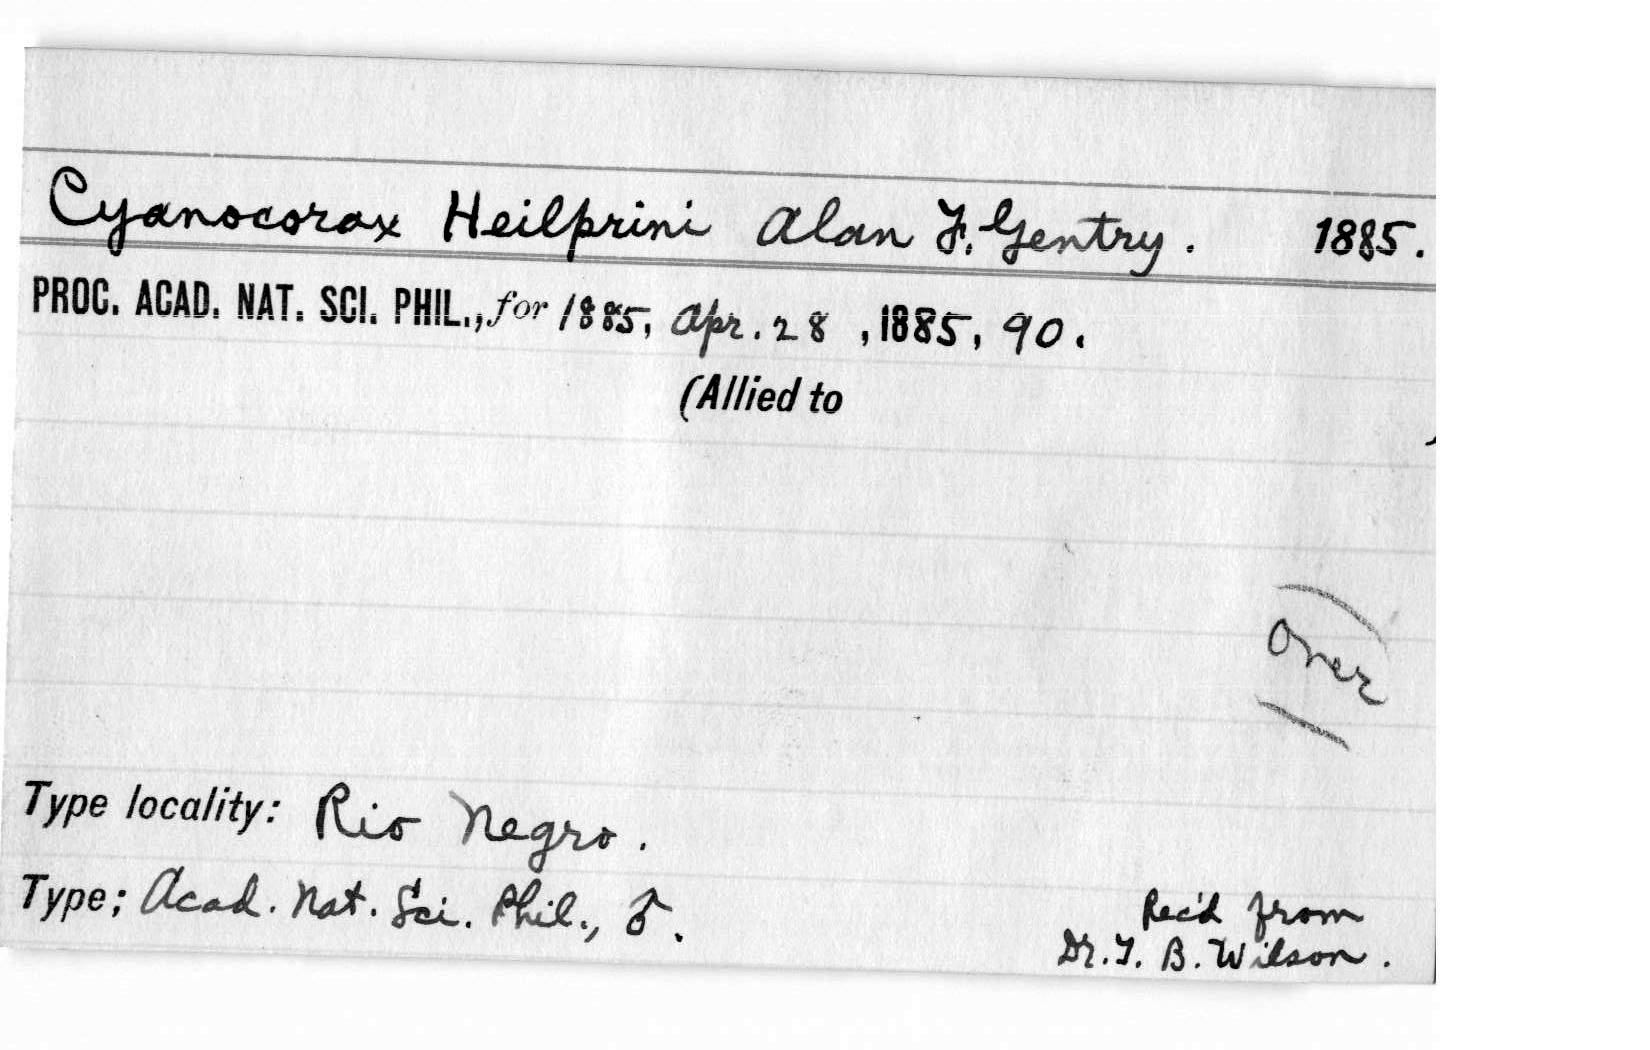 Cyanocorax Heilprini Alan F. Gentry. 1885.
PROC. ACAD. NAT. SCI. PHIL., for 1885, Apr. 28, 1885, 90.
(Allied to
(over)
Type locality: Rio Negro.
Type; Acad. Nat. Sci. Phil., ♂.
Rec'd from
Dr. T. B. Wilson.